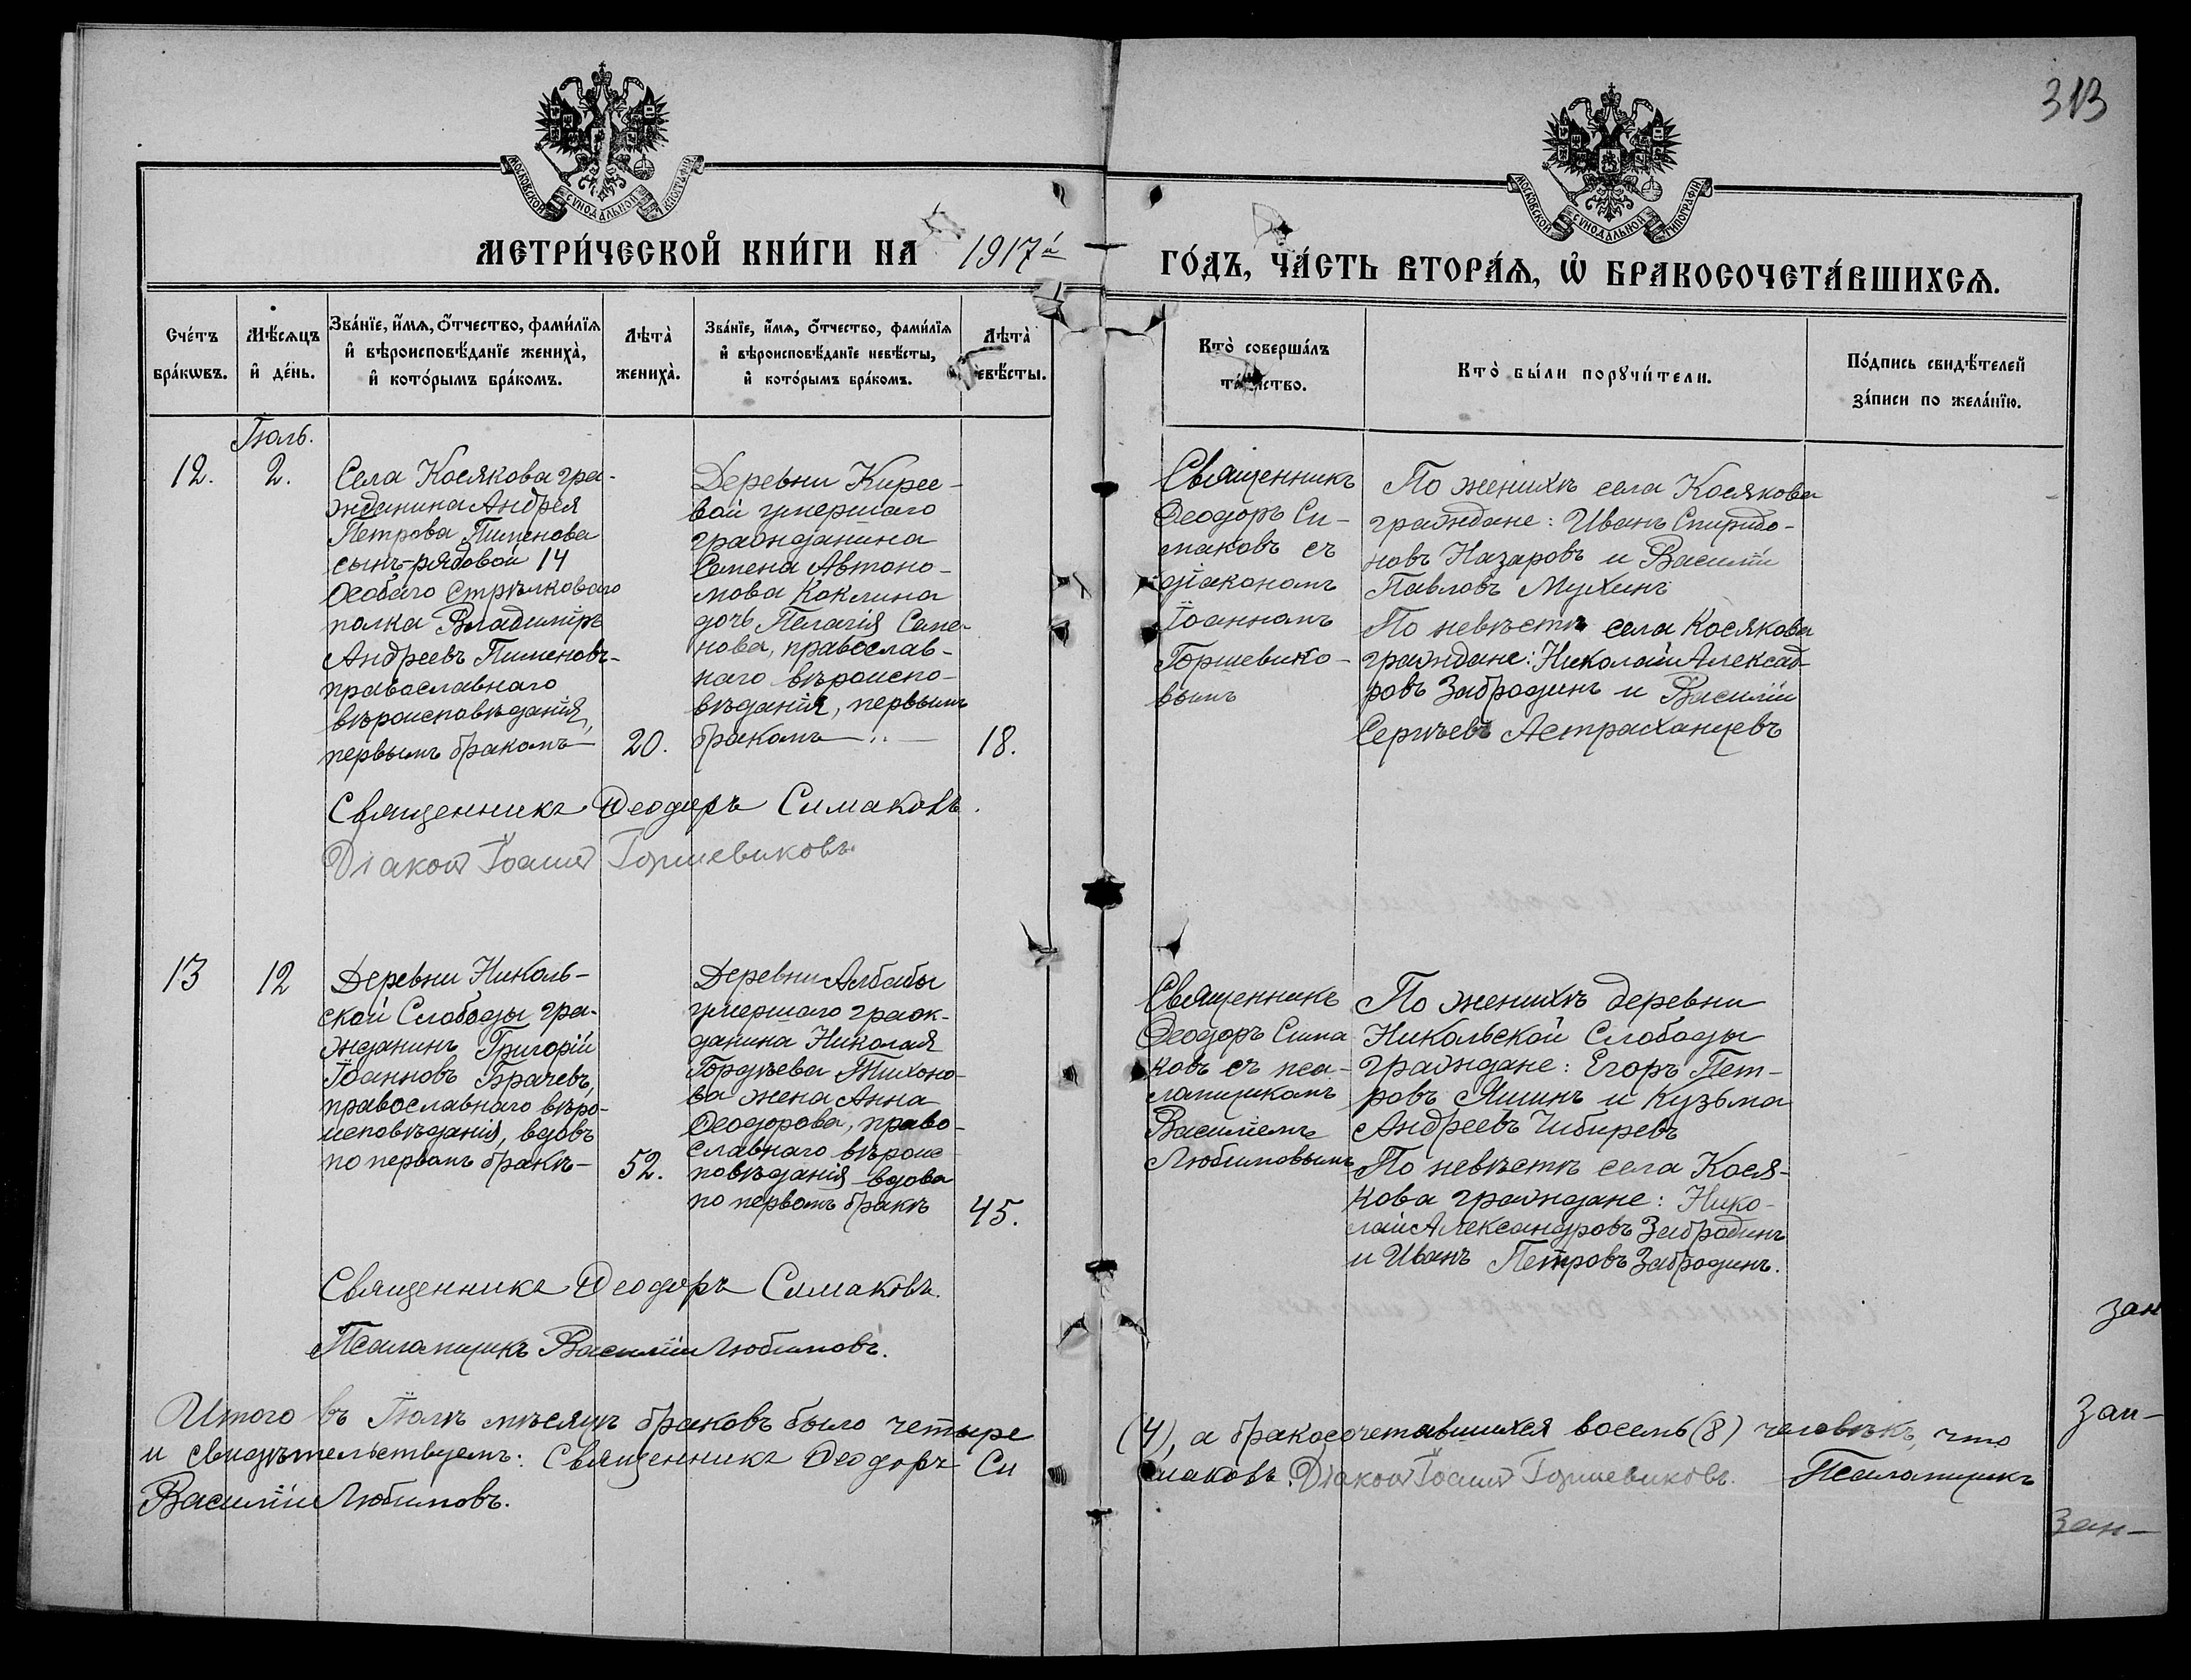 313
МОСКОВСКОЙ СѴНОДАЛЬНОЙ ТИПОГРАФІИ
МОСКОВСКОЙ СѴНОДАЛЬНОЙ ТИПОГРАФІИ
МЕТРИ́ЧЕСКОЙ КНИ́ГИ НА 1917й
ГО́ДЪ, ЧА́СТЬ ВТОРА́Ѧ, Ѽ БРАКОСОЧЕТА́ВШИХСѦ.
Сче́тъ
бра́кѡвъ.
Мѣ́сѧцъ
и де́нь.
Зва́нїе, и́мѧ, о́тчество, фами́лїѧ
и вѣроисповѣ́данїе жениха̀,
и кото́рымъ бра́комъ.
Лѣта̀
жениха̀.
Зва́нїе, и́мѧ, о́тчество, фами́лїѧ
и вѣроисповѣ́данїе невѣ́сты,
и кото́рымъ бра́комъ.
Лѣта̀
невѣ́сты.
Кто̀ соверша́лъ
та́инство.
Кто̀ бы́ли порꙋчи́тели.
По́дпись свидѣ́телей
за́писи по жела́нїю.
Іюль.
12.
2.
Села Косякова гра-
жданина Андрея
Петрова Пименова
сынъ-рядовой 14
Особаго Стрѣлковаго
полка Владимiръ
Андреевъ Пименовъ-
православнаго
вѣроисповѣданiя,
первымъ бракомъ—
20.
Деревни Кирее-
вой умершаго
гражданина
Семена Автоно-
мова Коклина
дочь Пелагiя Семе-
нова, православ-
наго вѣроиспо-
вѣданiя, первымъ
бракомъ —
18.
Священникъ
Ѳеодоръ Си-
маковъ съ
дiакономъ
Iоанномъ
Горшевико-
вымъ
По женихѣ села Косякова
граждане: Иванъ Спиридо-
новъ Назаровъ и Василiй
Павловъ Мухинъ
По невѣстѣ села Косякова
граждане: Николай Алексад-
ровъ Забродинъ и Василiй
Сергѣевъ Астраханцевъ
Священникъ Ѳеодоръ Симаковъ.
Дiаконъ Iоаннъ Горшевиковъ.
13
12
Деревни Николь-
ской Слободы гра-
жданинъ Григорiй
Iоанновъ Грачевъ,
православнаго вѣро-
исповѣданiя, вдовъ
по первомъ бракѣ—
52.
Деревни Албабы
умершаго граж-
данина Николая
Гордѣева Тихоно-
ва жена Анна
Ѳеодорова, право-
славнаго вѣроис
повѣданiя—вдова
по первомъ бракѣ
45.
Священникъ
Ѳеодоръ Сима
ковъ съ пса-
ломщикомъ
Василiемъ
Любимовымъ
По женихѣ деревни
Никольской Слободы
граждане: Егоръ Пет-
ровъ Яшинъ и Кузьма
Андреевъ Чибиревъ
По невѣстѣ села Кося-
кова граждане: Нико-
лай Александровъ Забродинъ
и Иванъ Петровъ Забродинъ.
Священникъ Ѳеодоръ Симаковъ.
Псаломщикъ Василiй Любимовъ.
зан
Зап-
Зап-
Итого въ Iюлѣ мѣсяцѣ браковъ было четыре (4), а бракосочетавшихся восемь (8) человѣкъ, что
и свидѣтельствуемъ: Священникъ Ѳеодоръ Симаковъ. Дiаконъ Iоаннъ Горшевиковъ. Псаломщикъ
Василiй Любимовъ.